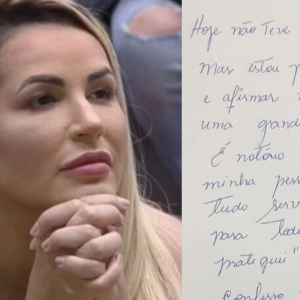 Hoje não teve
Mas estou p
e afirmar
uma grand
É notório
minha pess
tudo serv
para tod
pratiquei "
Confesso